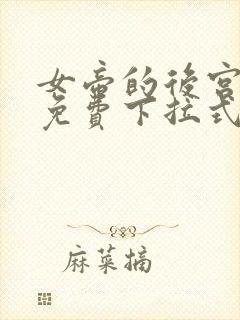 女帝的後宮
免費下拉式
麻菜摘